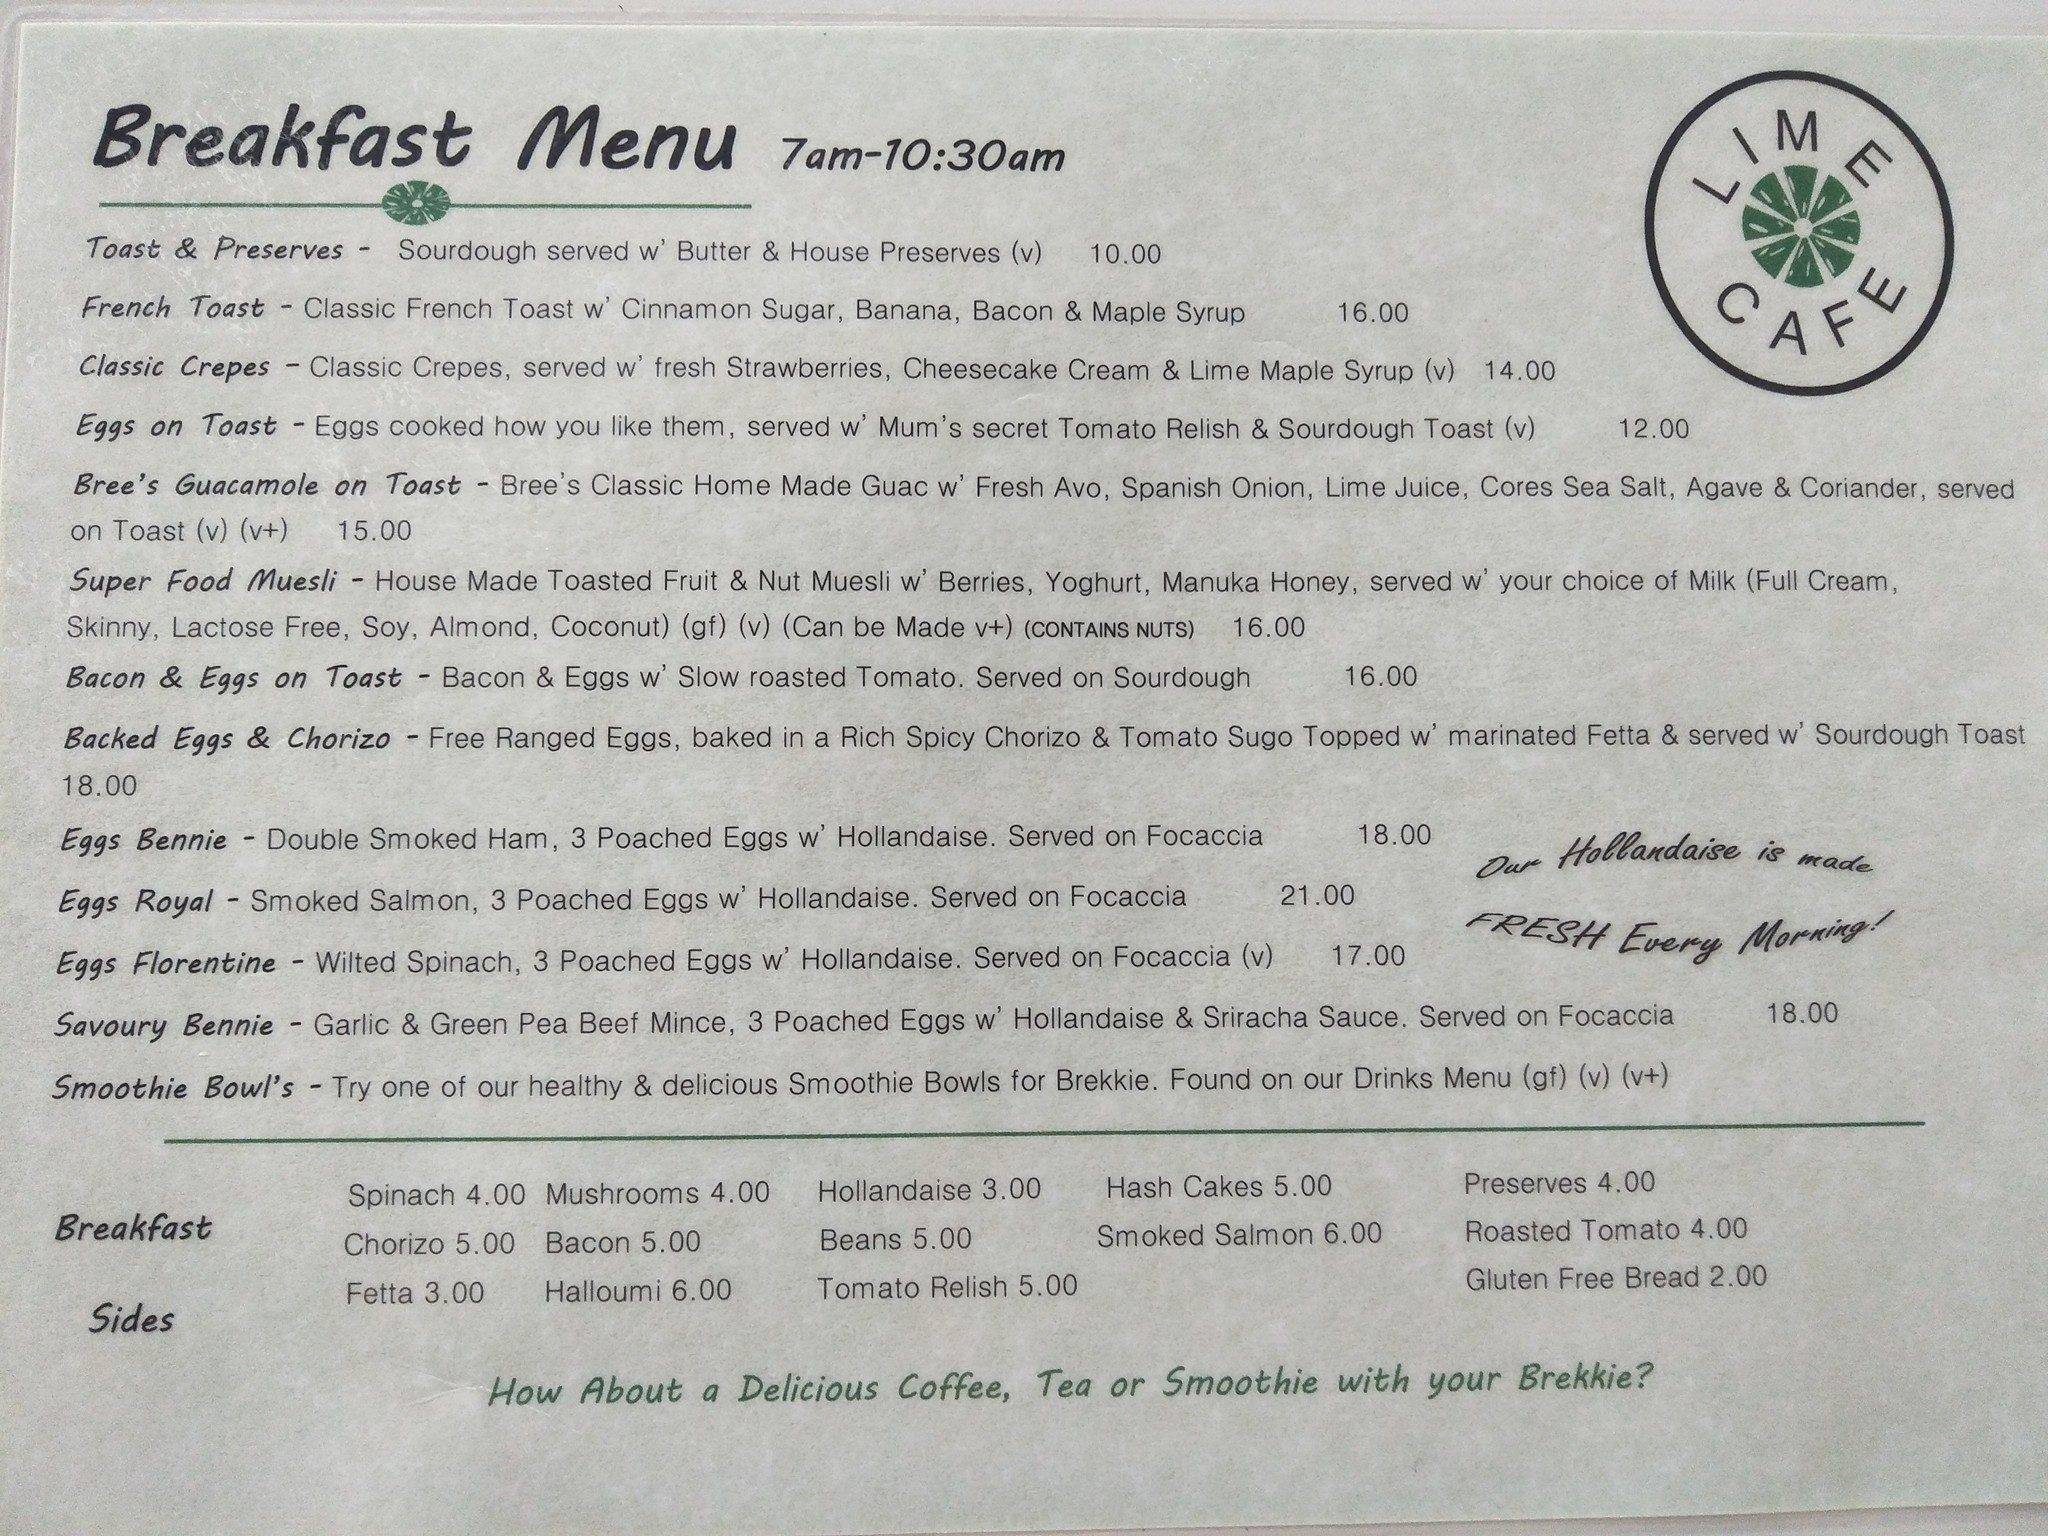 Breakfast Menu 7am-10:30am
LIME
CAFE
Toast & Preserves - Sourdough served w' Butter & House Preserves (v) 10.00
French Toast - Classic French Toast w' Cinnamon Sugar, Banana, Bacon & Maple Syrup 16.00
Classic Crepes - Classic Crepes, served w' fresh Strawberries, Cheesecake Cream & Lime Maple Syrup (v) 14.00
Eggs on Toast - Eggs cooked how you like them, served w' Mum's secret Tomato Relish & Sourdough Toast (v) 12.00
Bree's Guacamole on Toast - Bree's Classic Home Made Guac w' Fresh Avo, Spanish Onion, Lime Juice, Cores Sea Salt, Agave & Coriander, served
on Toast (v) (v+) 15.00
Super Food Muesli - House Made Toasted Fruit & Nut Muesli w' Berries, Yoghurt, Manuka Honey, served w' your choice of Milk (Full Cream,
Skinny, Lactose Free, Soy, Almond, Coconut) (gf) (v) (Can be Made v+) (CONTAINS NUTS) 16.00
Bacon & Eggs on Toast - Bacon & Eggs w' Slow roasted Tomato. Served on Sourdough 16.00
Backed Eggs & Chorizo - Free Ranged Eggs, baked in a Rich Spicy Chorizo & Tomato Sugo Topped w' marinated Fetta & served w' Sourdough Toast
18.00
Eggs Bennie - Double Smoked Ham, 3 Poached Eggs w' Hollandaise. Served on Focaccia 18.00
Eggs Royal - Smoked Salmon, 3 Poached Eggs w' Hollandaise. Served on Focaccia 21.00
Eggs Florentine - Wilted Spinach, 3 Poached Eggs w' Hollandaise. Served on Focaccia (v) 17.00
Our Hollandaise is made
FRESH Every Morning!
Savoury Bennie - Garlic & Green Pea Beef Mince, 3 Poached Eggs w' Hollandaise & Sriracha Sauce. Served on Focaccia 18.00
Smoothie Bowl's - Try one of our healthy & delicious Smoothie Bowls for Brekkie. Found on our Drinks Menu (gf) (v) (v+)
Breakfast
Sides
Spinach 4.00 Mushrooms 4.00 Hollandaise 3.00 Hash Cakes 5.00 Preserves 4.00
Chorizo 5.00 Bacon 5.00 Beans 5.00 Smoked Salmon 6.00 Roasted Tomato 4.00
Fetta 3.00 Halloumi 6.00 Tomato Relish 5.00 Gluten Free Bread 2.00
How About a Delicious Coffee, Tea or Smoothie with your Brekkie?